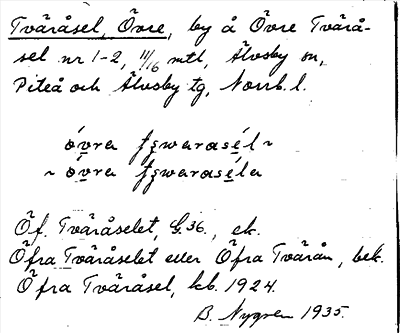 Tväråsel, Övre, by å Övre Tvärå-
sel nr 1-2, 11/16 mtl, Älvsby sn,
Piteå och Älvsby tg, Norrb. l.
óvra tswarasél ~
~ óvra tswaraséla
Öf. Tväråselet, G. 36., ek.
Öfra Tväråselet eller Öfra Tvärån, bek.
Öfra Tväråsel, kb. 1924.
B. Nygren 1935.